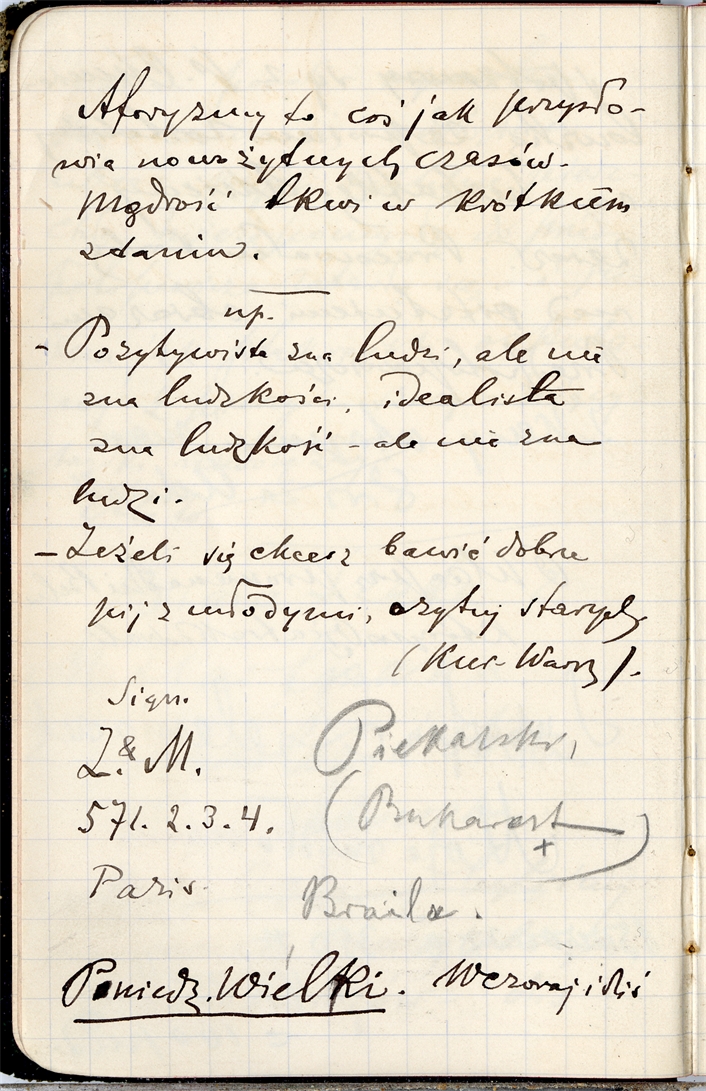 Aforyzmy to coś jak przysło-
wia nowożytnych czasów.
Mądrość tkwi w krótkiem
zdaniu.
np.
- Pozytywista zna ludzi, ale nie
zna ludzkości, idealista
zna ludzkość - ale nie zna
ludzi.
- Jeżeli się chcesz bawić dobrze
pij z młodymi, czytuj starych
(Kur. Warsz).
Sign.
Z. & M.
571. 2. 3. 4.
Paris.
Piekarski,
(Bukarest)
+
Braila.
Poniedz. Wielki. Wczoraj i dziś